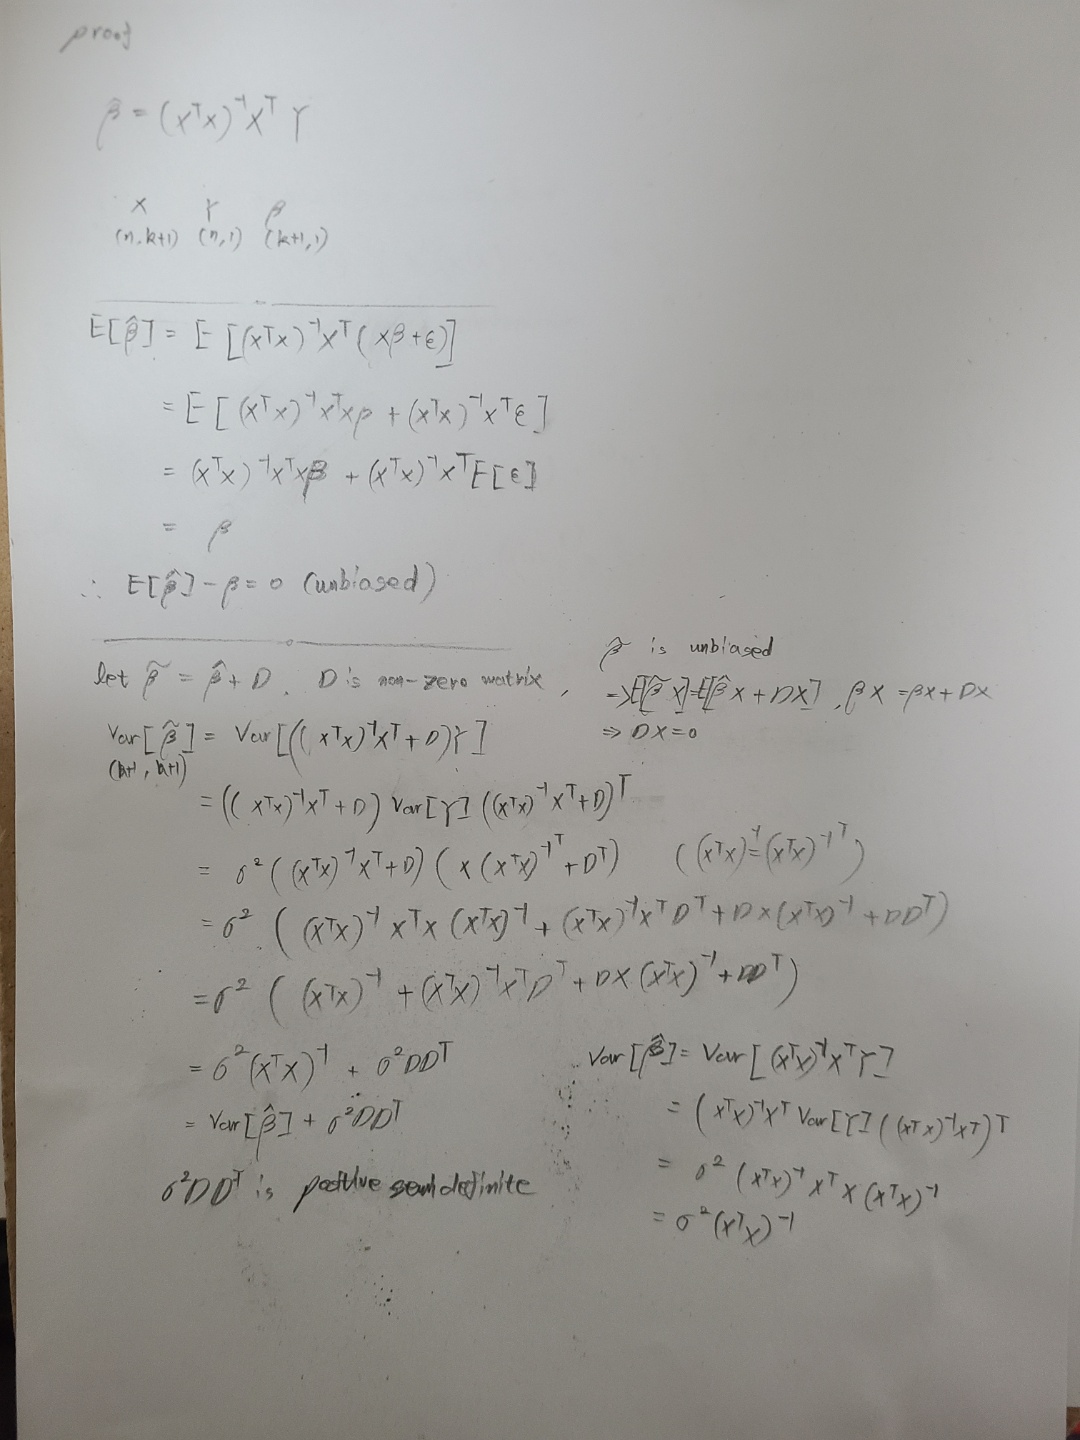 proof
β̂ = (XᵀX)⁻¹XᵀY
X Y β
(n, k+1) (n, 1) (k+1, 1)
E[β̂] = E[(XᵀX)⁻¹Xᵀ(Xβ+ε)]
= E[(XᵀX)⁻¹XᵀXβ + (XᵀX)⁻¹Xᵀε]
= (XᵀX)⁻¹XᵀXβ + (XᵀX)⁻¹XᵀE[ε]
= β
∴ E[β̂] - β = 0 (unbiased)
let β̃ = β̂ + D. D is non-zero matrix,
Var[β̃] = Var[((XᵀX)⁻¹Xᵀ + D)Y]
(k+1, k+1)
= ((XᵀX)⁻¹Xᵀ + D) Var[Y] ((XᵀX)⁻¹Xᵀ + D)ᵀ
= σ²((XᵀX)⁻¹Xᵀ + D)(X(XᵀX)⁻¹ᵀ + Dᵀ) ((XᵀX)⁻¹ = (XᵀX)⁻¹ᵀ)
= σ² ((XᵀX)⁻¹XᵀX(XᵀX)⁻¹ + (XᵀX)⁻¹XᵀDᵀ + DX(XᵀX)⁻¹ + DDᵀ)
= σ² ((XᵀX)⁻¹ + (XᵀX)⁻¹XᵀDᵀ + DX(XᵀX)⁻¹ + DDᵀ)
= σ²(XᵀX)⁻¹ + σ²DDᵀ
= Var[β̂] + σ²DDᵀ
σ²DDᵀ is positive semidefinite
β̃ is unbiased
⇒ E[β̃X] = E[β̂X + DX], βX = βX + DX
⇒ DX = 0
Var[β̂] = Var[(XᵀX)⁻¹XᵀY]
= (XᵀX)⁻¹Xᵀ Var[Y] ((XᵀX)⁻¹Xᵀ)ᵀ
= σ² (XᵀX)⁻¹XᵀX(XᵀX)⁻¹
= σ²(XᵀX)⁻¹